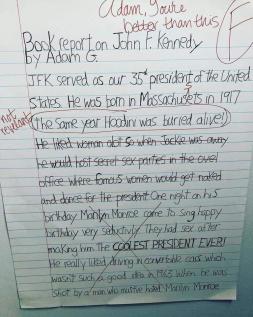 Adam, you're
better than this
F
Book report on John F. Kennedy
by Adam G.
JFK served as our 35th president of the United
States. He was born in Massachusets in 1917
not relevant
(the same year Hoodini was buried alive)
He liked woman alot so when Jackie was away
he would host secret sex parties in the ovel
office where famous women would get naked
and dance for the president One night on his
birthday Marilyn Monroe came to sing happy
birthday very seductivly They had sex after
making him The COOLEST PRESIDENT EVER!
He really liked driving in convertable cars which
wasn't such a good idea in 1963 when he was
shot by a man who mustve hated Marilyn Monroe